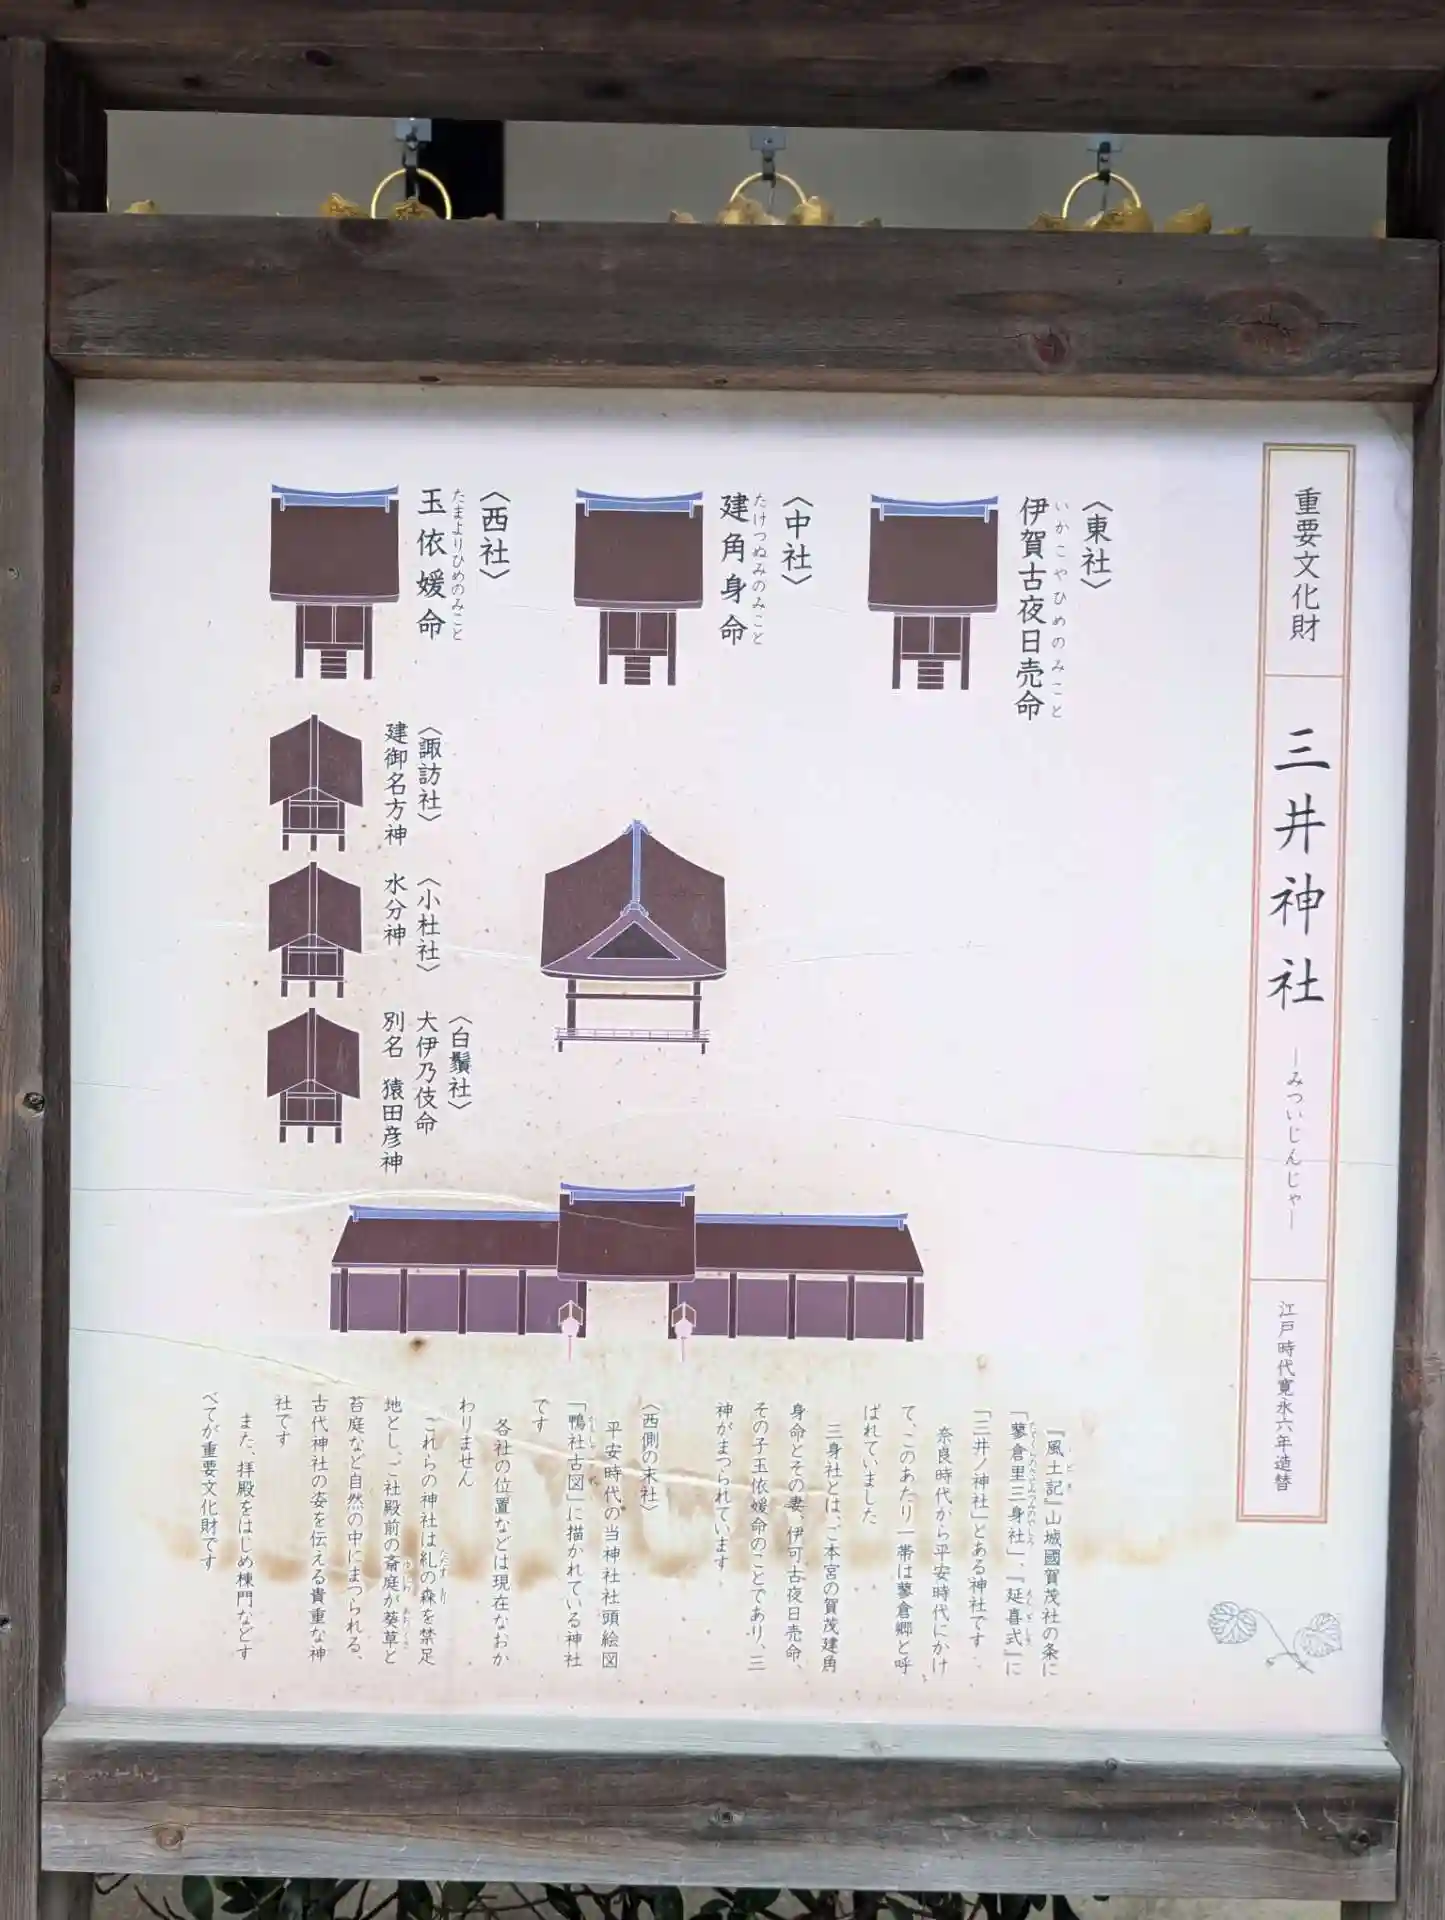 重要文化財
三井神社
―みついじんじゃ―
江戸時代寛永六年造替
〈東社〉
伊賀古夜日売命
いかこやひめのみこと
〈中社〉
建角身命
たけつぬみのみこと
〈西社〉
玉依媛命
たまよりひめのみこと
〈諏訪社〉
建御名方神
〈小杜社〉
水分神
〈白鬚社〉
大伊乃伎命
別名 猿田彦神
『風土記』山城國賀茂社の条に
「蓼倉里三身社」、『延喜式』に
「三井ノ神社」とある神社です
奈良時代から平安時代にかけ
て、このあたり一帯は蓼倉郷と呼
ばれていました
三身社とは、ご本宮の賀茂建角
身命とその妻、伊可古夜日売命、
その子玉依媛命のことであり、三
神がまつられています
〈西側の末社〉
平安時代の当神社社頭絵図
「鴨社古図」に描かれている神社
です
各社の位置などは現在なおか
わりません
これらの神社は糺の森を禁足
地とし、ご社殿前の斎庭が葵草と
苔庭など自然の中にまつられる、
古代神社の姿を伝える貴重な神
社です
また、拝殿をはじめ棟門などす
べてが重要文化財です